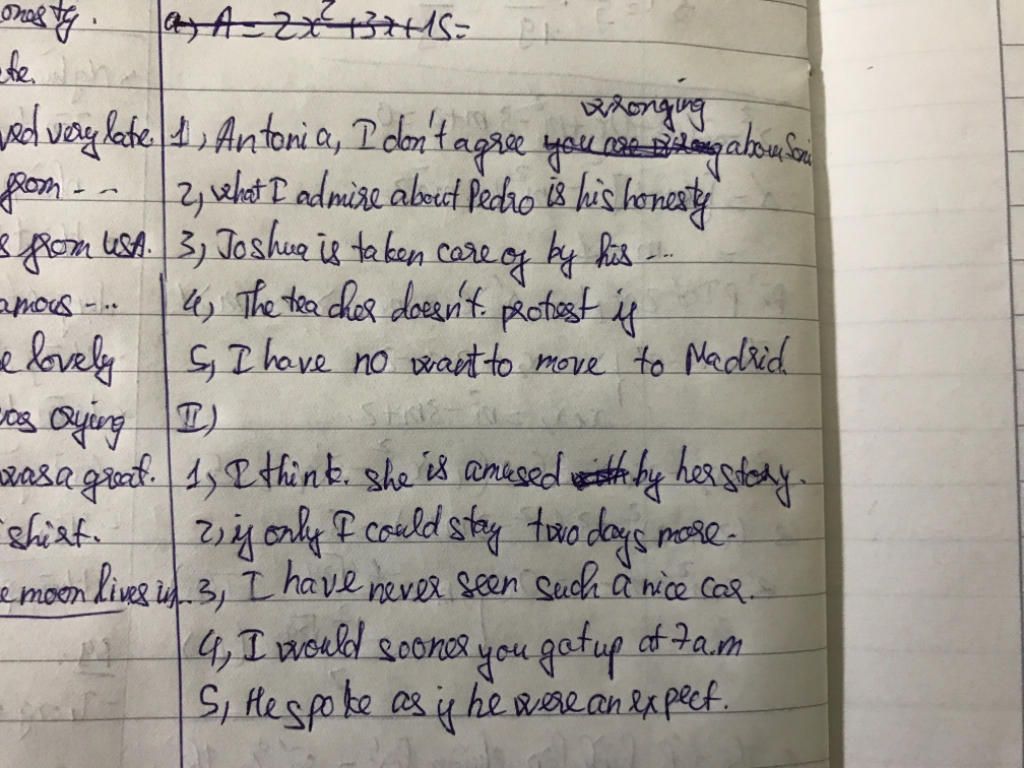 onesty.
a, A = 2x²+3x+15=
te.
wronging
ved very late.
1, Antonia, I don't agree you are wrong about Soni
from - --
2, what I admire about Pedro is his honesty
s from USA.
3, Joshua is taken care of by his ---
amous ----
4, The teacher doesn't. protest if
e lovely
5, I have no want to move to Madrid.
was crying
II)
was a great.
1, I think. she is amused with by her story.
shirt.
2, if only I could stay two days more.
e moon lives in
3, I have never seen such a nice car.
4, I would sooner you got up at 7 a.m
5, He spoke as if he were an expect.